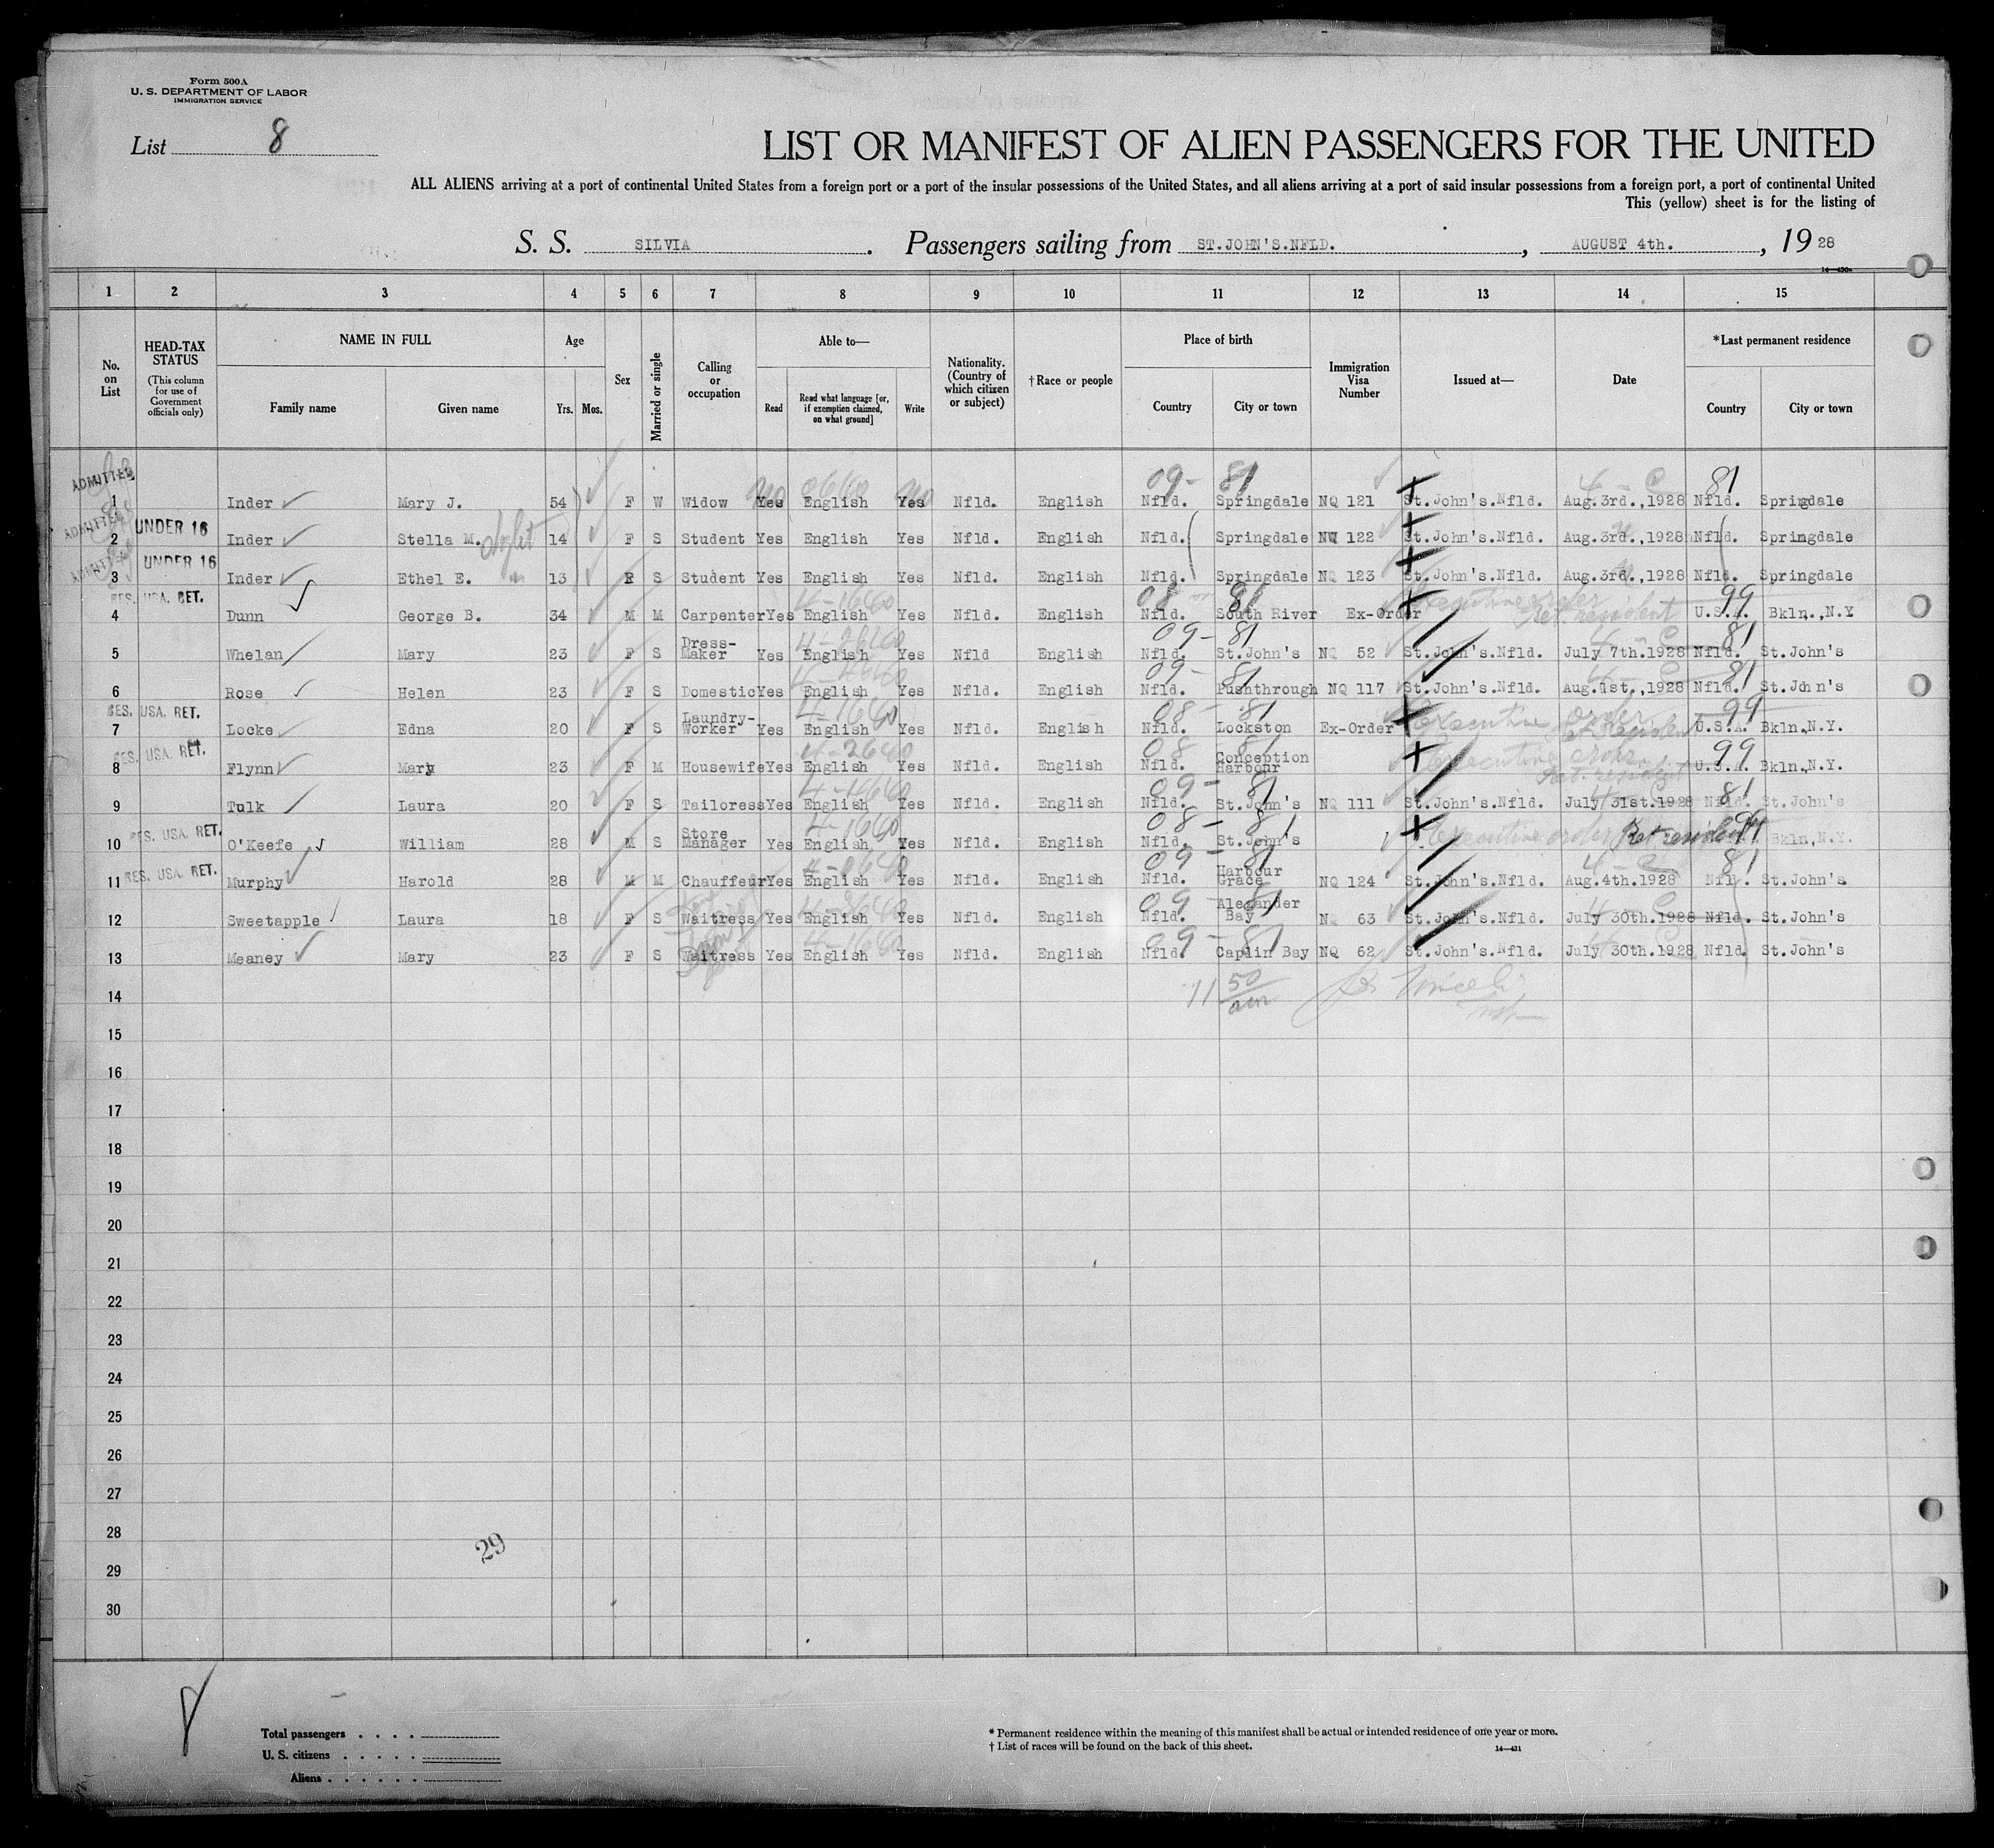 Form 500A
U. S. DEPARTMENT OF LABOR
IMMIGRATION SERVICE
List 8
LIST OR MANIFEST OF ALIEN PASSENGERS FOR THE UNITED
ALL ALIENS arriving at a port of continental United States from a foreign port or a port of the insular possessions of the United States, and all aliens arriving at a port of said insular possessions from a foreign port, a port of continental United
This (yellow) sheet is for the listing of
S. S. SILVIA. Passengers sailing from ST.JOHN'S.NFLD., AUGUST 4th., 1928
14—430a
1 2 3 4 5 6 7 8 9 10 11 12 13 14 15
No. on List
HEAD-TAX STATUS (This column for use of Government officials only)
NAME IN FULL
Family name Given name
Age
Yrs. Mos.
Sex
Married or single
Calling or occupation
Able to—
Read Read what language [or, if exemption claimed, on what ground] Write
Nationality. (Country of which citizen or subject)
†Race or people
Place of birth
Country City or town
Immigration Visa Number
Issued at—
Date
*Last permanent residence
Country City or town
ADMITTED
09- 81 4 - C 81
1 Inder Mary J. 54 F W Widow Yes English Yes Nfld. English Nfld. Springdale NQ 121 St.John's.Nfld. Aug.3rd.,1928 Nfld. Springdale
ADMITTED UNDER 16
2 Inder Stella M. 14 F S Student Yes English Yes Nfld. English Nfld. Springdale NQ 122 St.John's.Nfld. Aug.3rd.,1928 Nfld. Springdale
ADMITTED UNDER 16
3 Inder Ethel E. 13 F S Student Yes English Yes Nfld. English Nfld. Springdale NQ 123 St.John's.Nfld. Aug.3rd.,1928 Nfld. Springdale
RES. USA. RET. 4-1640 08 81 Executive order Ret. resident 99
4 Dunn George B. 34 M M Carpenter Yes English Yes Nfld. English Nfld. South River Ex-Order U.S.A. Bkln.,N.Y
09- 81 4 - C 81
5 Whelan Mary 23 F S Dress-Maker Yes English Yes Nfld English Nfld. St.John's NQ 52 St.John's.Nfld. July 7th.1928 Nfld. St.John's
09- 81 4 - C 81
6 Rose Helen 23 F S Domestic Yes English Yes Nfld. English Nfld. Pushthrough NQ 117 St.John's.Nfld. Aug.1st.,1928 Nfld. St.John's
RES. USA. RET. 4-1640 08- 81 Executive order Ret. Resident 99
7 Locke Edna 20 F S Laundry-Worker Yes English Yes Nfld. English Nfld. Lockston Ex-Order U.S.A. Bkln,N.Y.
RES. USA. RET. 4-2640 08 81 Executive order Ret. resident 99
8 Flynn Mary 23 F M Housewife Yes English Yes Nfld. English Nfld. Conception Harbour U.S.A. Bkln.,N.Y.
09- 81 81
9 Tulk Laura 20 F S Tailoress Yes English Yes Nfld. English Nfld. St.John's NQ 111 St.John's.Nfld. July 31st.1928 Nfld. St.John's
RES. USA. RET. 4-1640 08- 81 Executive order Ret resident 99
10 O'Keefe William 28 M S Store Manager Yes English Yes Nfld. English Nfld. St.John's Bkln,N.Y.
RES. USA. RET. 09- 81 4 - C 81
11 Murphy Harold 28 M M Chauffeur Yes English Yes Nfld. English Nfld. Harbour Grace NQ 124 St.John's.Nfld. Aug.4th.1928 Nfld. St.John's.
09 81
12 Sweetapple Laura 18 F S Waitress Yes English Yes Nfld. English Nfld. Alexander Bay NQ 63 St.John's.Nfld. July 30th.1928 Nfld. St.John's
09- 81
13 Meaney Mary 23 F S Waitress Yes English Yes Nfld. English Nfld. Caplin Bay NQ 62 St.John's.Nfld. July 30th.1928 Nfld. St.John's
11 50 am
14
15
16
17
18
19
20
21
22
23
24
25
26
27
28
29
29
30
Total passengers
U. S. citizens
Aliens
* Permanent residence within the meaning of this manifest shall be actual or intended residence of one year or more.
† List of races will be found on the back of this sheet.
14—431